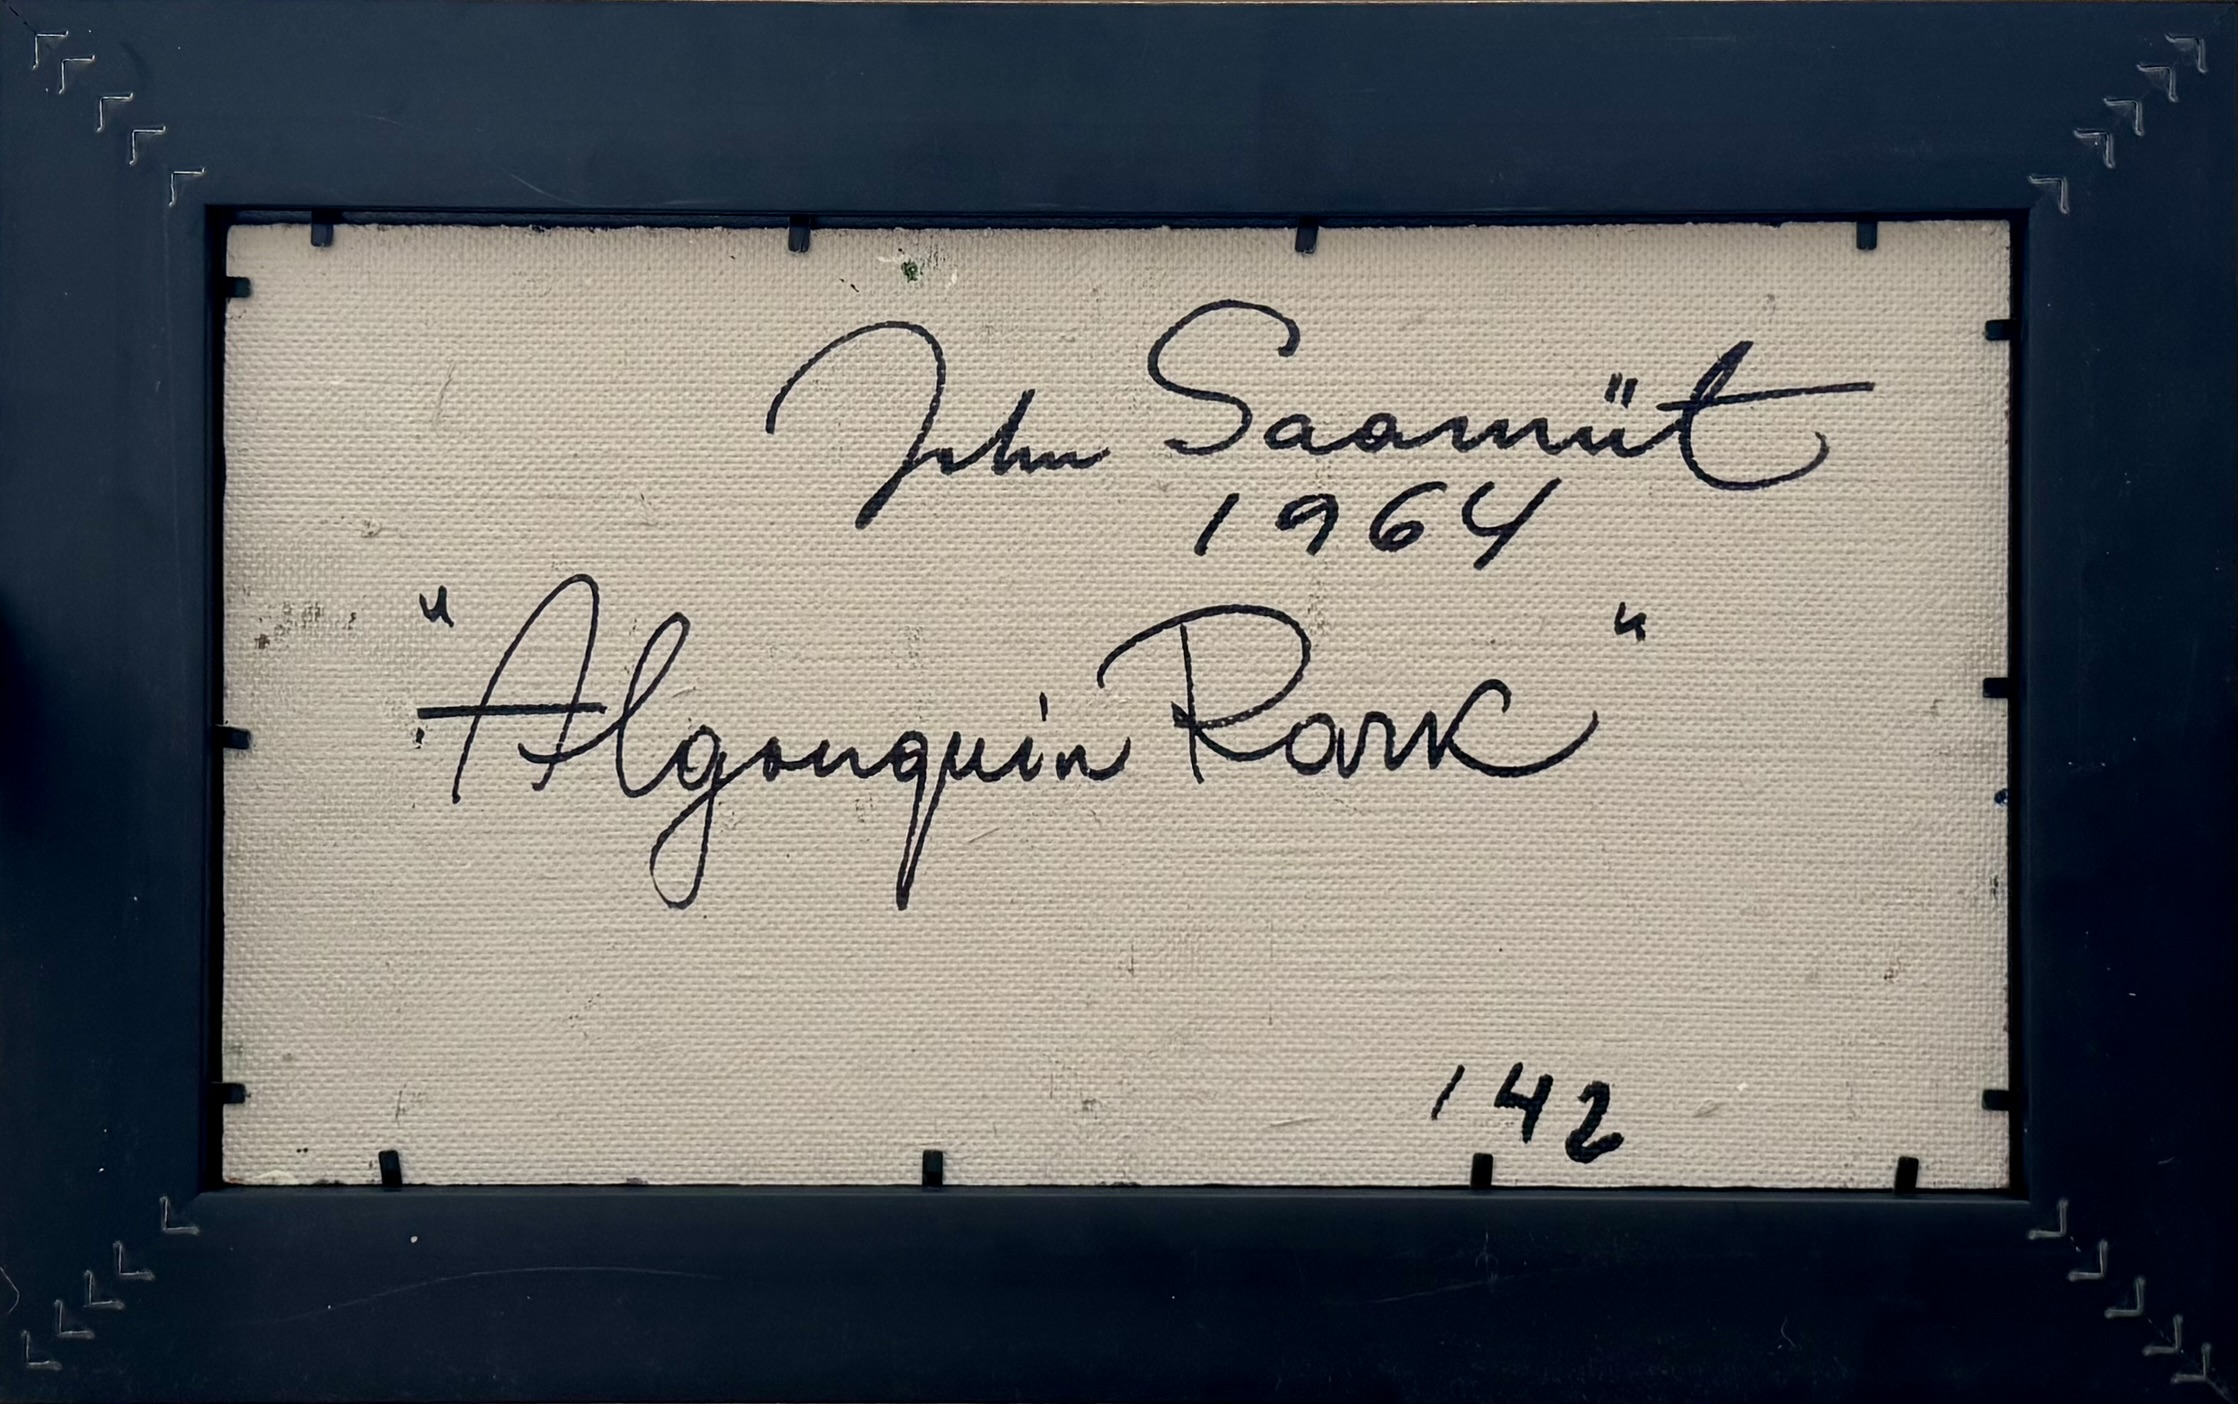 John Saamüt
1964
"Algonquin Park"
142